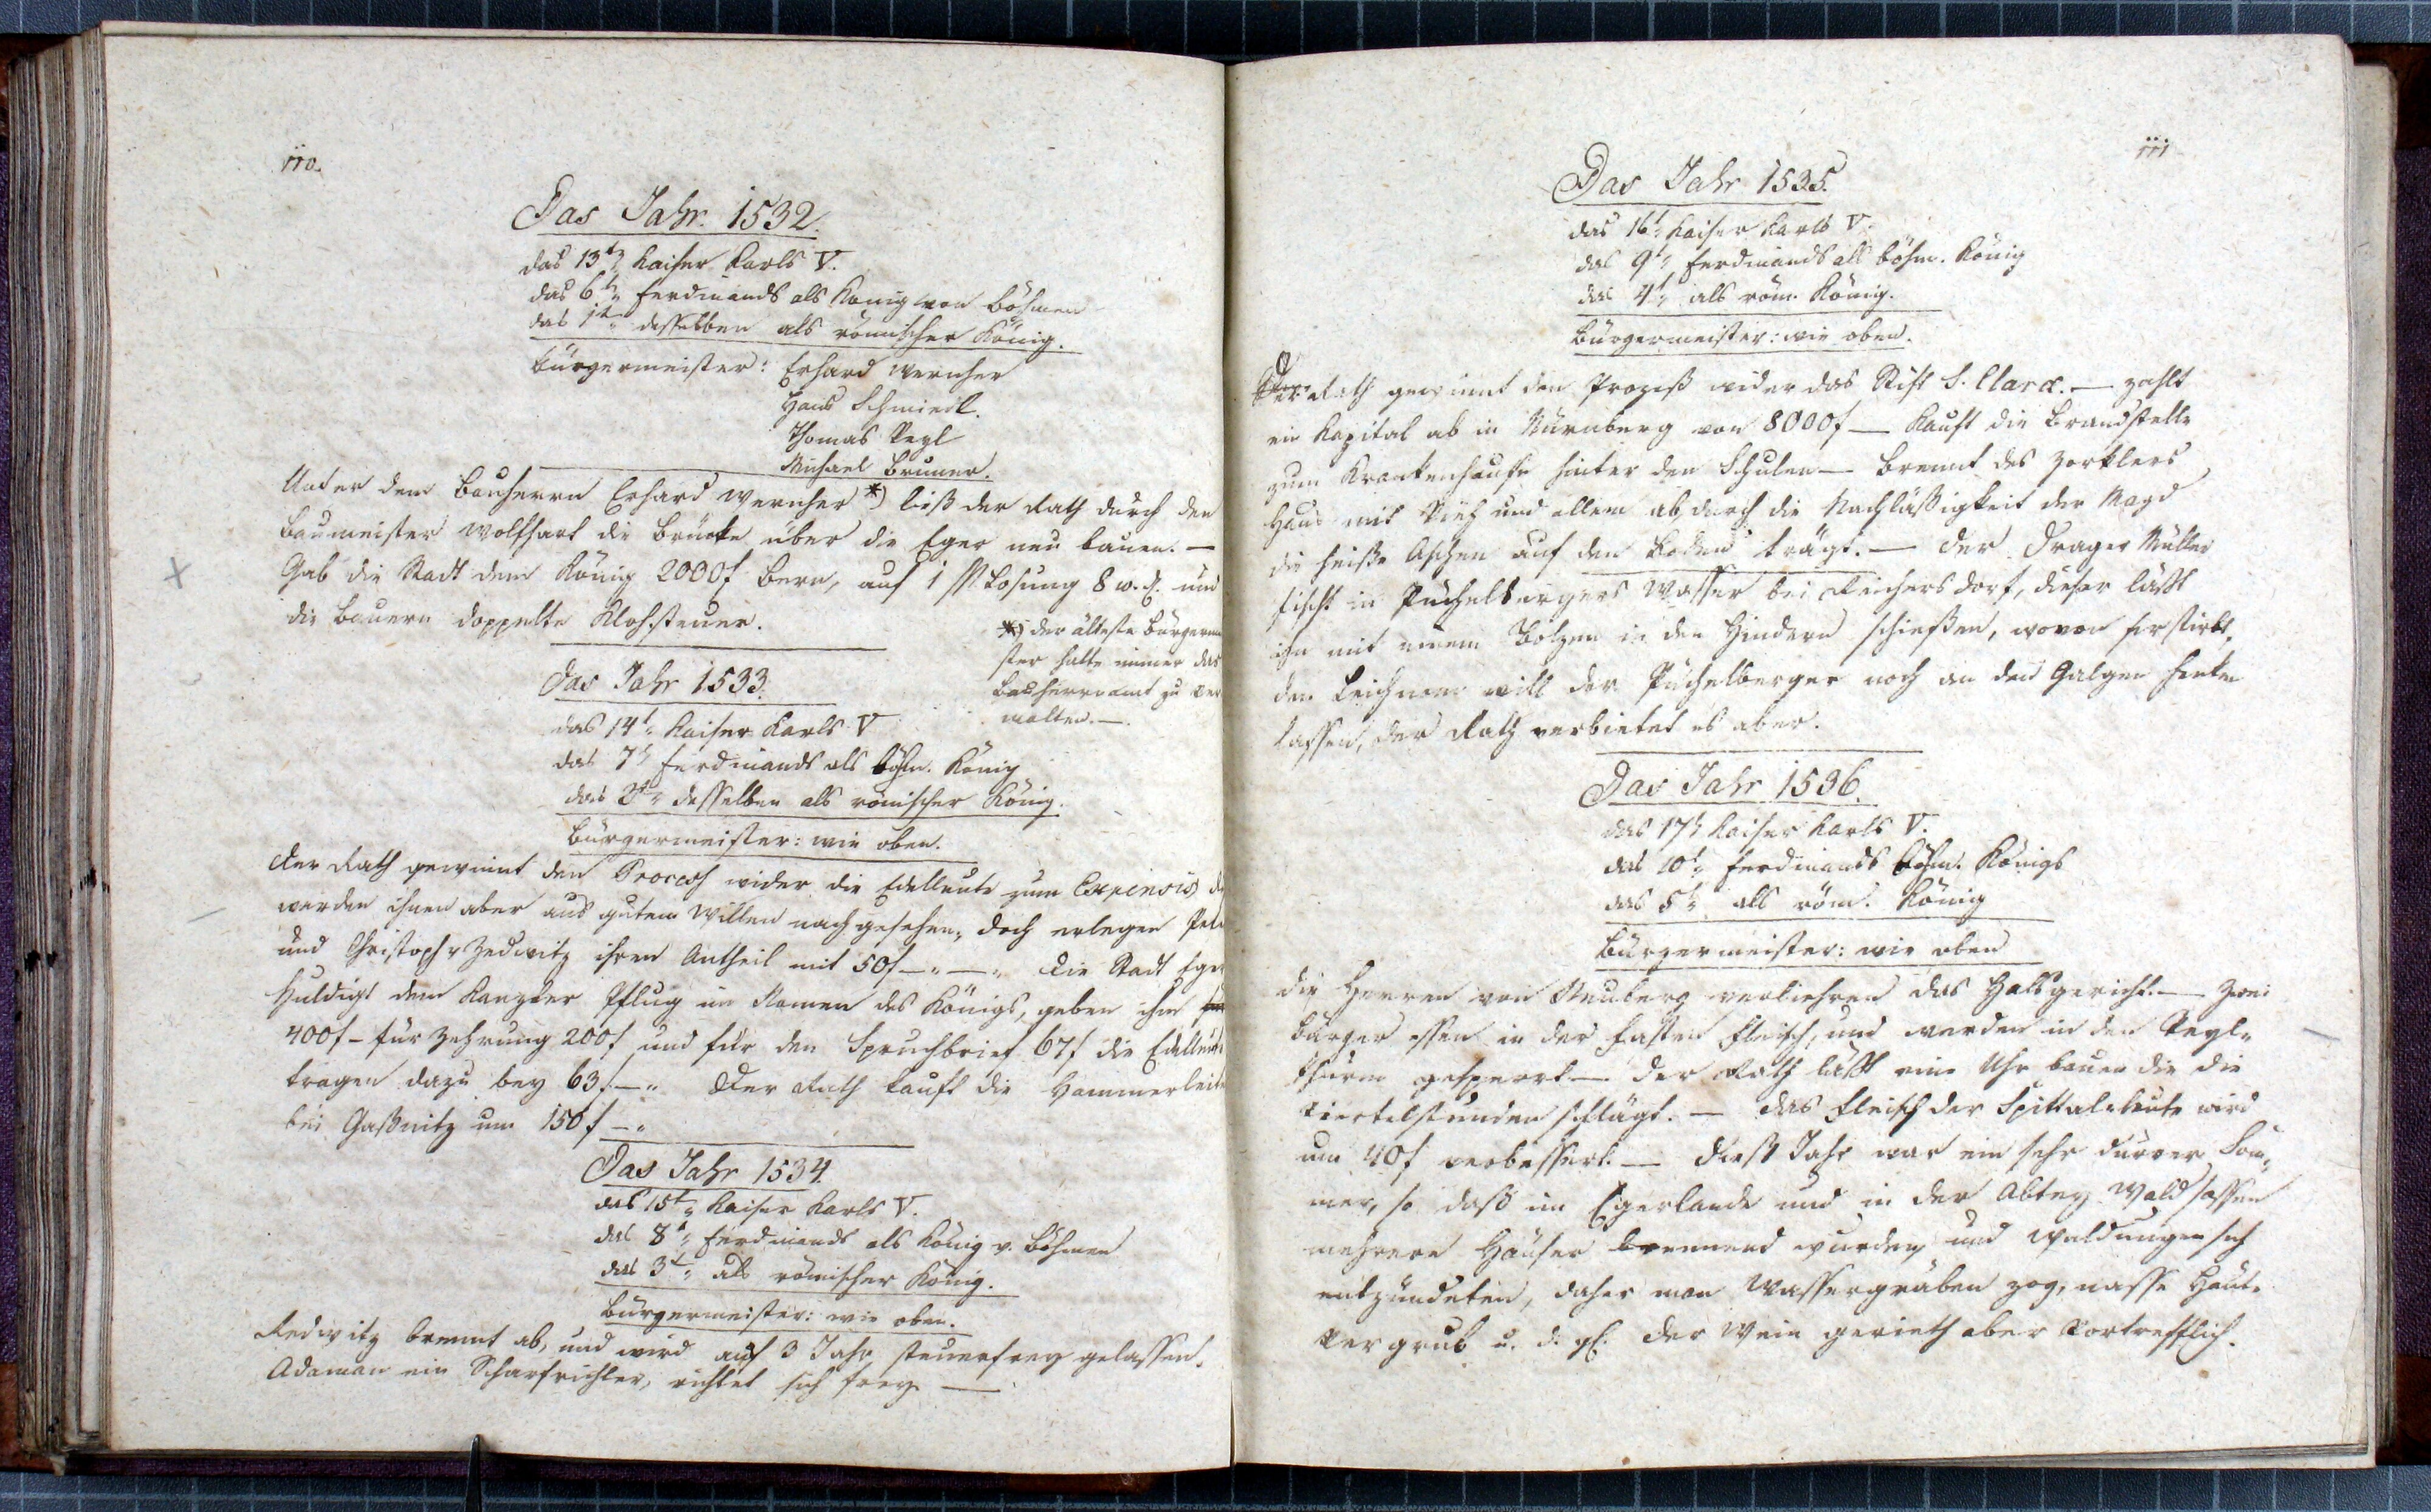 110.
Das Jahr 1532.
das 13t Kaiser Karls V.
das 6t Ferdinands als König von Böhmen
das 1t desselben als römischer König.
Bürgermeister: Erhard Wernher
Hans Schmiedl.
Thomas Pegl
Michael Bruner.
Unter dem Bauherrn Erhard Wernher *) ließ der Rath durch den
Baumeister Wolfhart die Brücke über die Eger neu bauen. —
Gab die Stadt dem König 2000f Bern, auf 1 Losung 8 w. und
die Bauern doppelte Klohsteuer.
*) der älteste Bürgermei
ster hatte immer das
Bauherrnamt zu ver
walten. —
Das Jahr 1533.
das 14t Kaiser Karls V
das 7t Ferdinands als böhm. König
das 2t desselben als römischer König.
Bürgermeister: wie oben.
Der Rath gewinnt den Process wider die Edelleute zum Expensis
werden ihnen aber aus gutem Willen nachgesehen, doch erlegen
und Christoph v Zedwitz ihren Antheil mit 50f — Die Stadt Eger
Huldigt dem Kanzler Pflug im Namen des Königs, geben ihm
400f – für Zehrung 200f und für den Spruchbrief 67f die Edelleute
tragen dazu bey 63f. — Der Rath kauft die Hammerleite
bei Gaßnitz um 150f —
Das Jahr 1534.
das 15t Kaiser Karls V.
das 8t Ferdinands als König v. Böhmen
das 3t als römischer König.
Bürgermeister: wie oben.
Redwitz brennt ab, und wird auf 3 Jahr steuerfrey gelassen.
Adaman ein Scharfrichter, richtet sich frey. —
111
Das Jahr 1535.
das 16t Kaiser Karls V.
das 9t Ferdinands als böhm. König
das 4t als röm. König.
Bürgermeister: wie oben.
Der Rath gewinnt den Prozeß wider das Stift S. Claræ. — zahlt
ein Kapital ab in Nürnberg von 8000f — Kauft die Brandstelle
zum Krankenhause hinter den Schulen — Brennt des Zorklers
Haus mit Vieh und allem ab, durch die Nachläßigkeit der Magd
die heiße Aschen auf den Boden trägt. — Der Drager Müller
fischt in Püchelbergers Wasser bei Reichersdorf, dieser läßt
ihn mit einem Bolzen in den Hindern schießen, wovon er stirbt,
den Leichnam will der Püchelberger noch an den Galgen henken
lassen, der Rath verbietet es aber.
Das Jahr 1536.
das 17t Kaiser Karls V.
das 10t Ferdinands böhm. Königs
das 5t als röm. König
Bürgermeister: wie oben
Die Herren von Neuberg verliehren das Halsgericht. — Zwei
Bürger essen in der Fasten Fleisch, und werden in den Pegl-
thurm gesperrt — Der Rath läßt eine Uhr bauen die die
Viertelstunden schlägt. — Das Fleisch der Spittalleute wird
um 40f verbessert. — Dieß Jahr war ein sehr dürrer Som-
mer, so daß im Egerlande und in der Abtey Waldsassen
mehrere Häuser brennend wurden, und Waldungen sich
entzündeten, daher man Wassergräben zog, nasse Häute
vergrub u. d. gl. Der Wein gerieth aber vortrefflich.